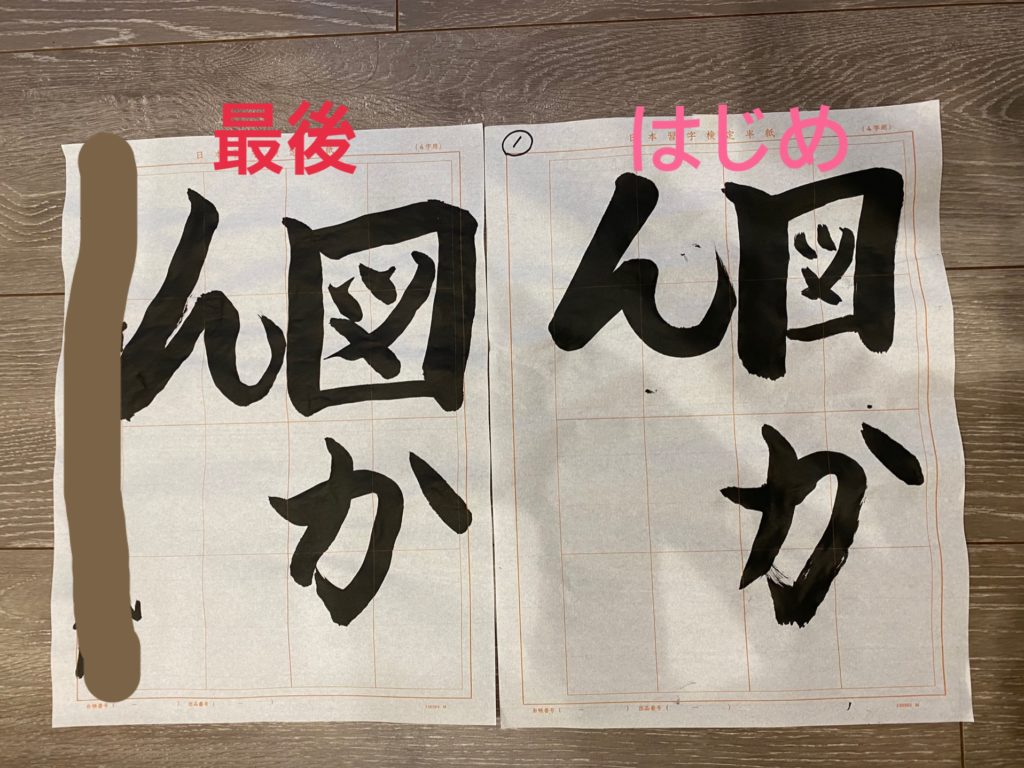 はじめ
①
日本習字検定半紙
(4字用)
図か
ん
最後
図か
ん